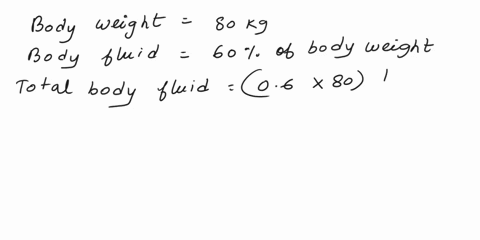 Body weight = 80 kg
Body fluid = 60% of body weight
Total body fluid = (0.6 x 80)